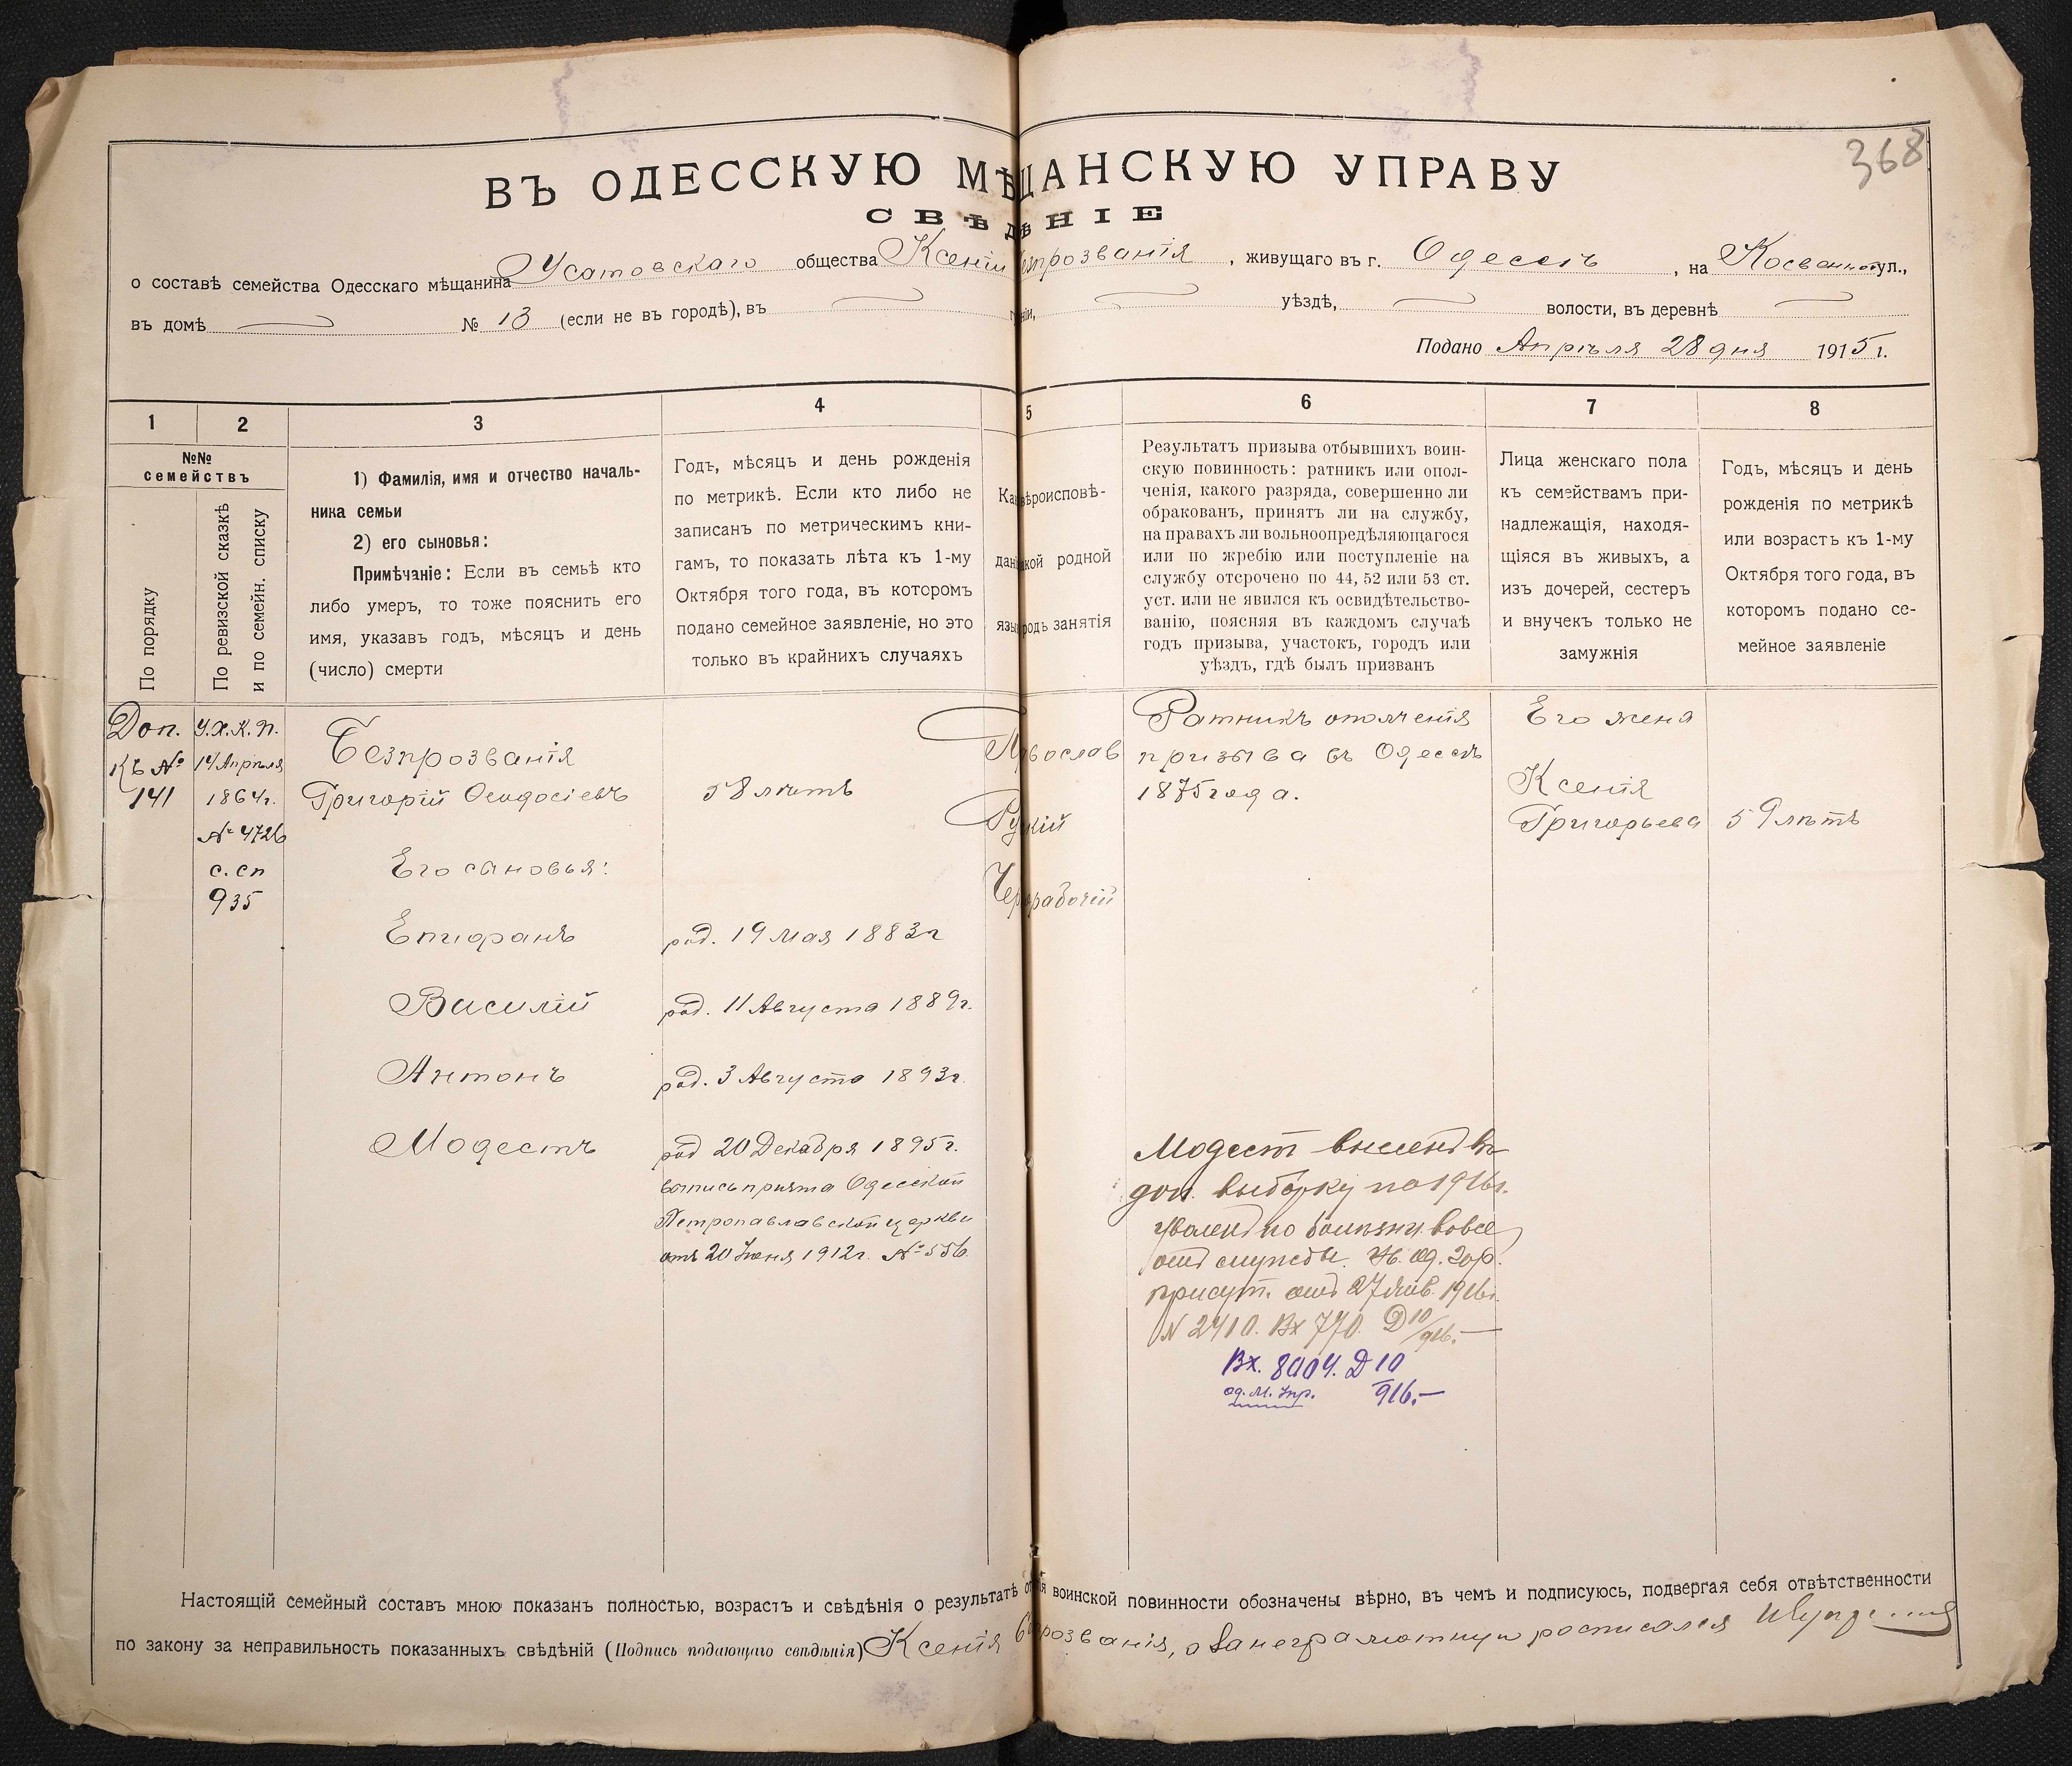 368
ВЪ ОДЕССКУЮ МѢЩАНСКУЮ УПРАВУ
СВѢДѢНІЕ
о составѣ семейства Одесскаго мѣщанина Усатовскаго общества Ксеніи Безпрозванія, живущаго въ г. Одессѣ, на Косвенной ул.,
въ домѣ № 13 (если не въ городѣ), въ уѣздѣ, волости, въ деревнѣ
Подано Апрѣля 28 дня 1915 г.
1 2 3 4 5 6 7 8
№№ семействъ
По порядку
По ревизской сказкѣ
и по семейн. списку
1) Фамилія, имя и отчество началь-
ника семьи
2) его сыновья:
Примѣчаніе: Если въ семьѣ кто
либо умеръ, то тоже пояснить его
имя, указавъ годъ, мѣсяцъ и день
(число) смерти
Годъ, мѣсяцъ и день рожденія
по метрикѣ. Если кто либо не
записанъ по метрическимъ кни-
гамъ, то показать лѣта къ 1-му
Октября того года, въ которомъ
подано семейное заявленіе, но это
только въ крайнихъ случаяхъ
вѣроисповѣ-
родной
занятія
Результатъ призыва отбывшихъ воин-
скую повинность: ратникъ или опол-
ченія, какого разряда, совершенно ли
обракованъ, принятъ ли на службу,
на правахъ ли вольноопредѣляющагося
или по жребію или поступленіе на
службу отсрочено по 44, 52 или 53 ст.
уст. или не явился къ освидѣтельство-
ванію, поясняя въ каждомъ случаѣ
годъ призыва, участокъ, городъ или
уѣздъ, гдѣ былъ призванъ
Лица женскаго пола
къ семействамъ при-
надлежащія, находя-
щіяся въ живыхъ, а
изъ дочерей, сестеръ
и внучекъ только не
замужнія
Годъ, мѣсяцъ и день
рожденія по метрикѣ
или возрасть къ 1-му
Октября того года, въ
которомъ подано се-
мейное заявленіе
Доп.
къ №
141
У.Х.К.П.
14 Апрѣля
1864г.
№ 4726
с. сп
935
Безпрозванія
Григорій Ѳеодосіевъ
58 лѣтъ
Его сыновья:
Епифанъ
род. 19 Мая 1883г
Василій
род. 11 Августа 1889г.
Антонъ
род. 3 Августа 1893г.
Модестъ
род 20 Декабря 1895г.
вотпись принята Одесской
Петропавлавской церкви
отъ 20 Іюня 1912г. № 556.
Православ
Русскій
Чернорабочій
Ратникъ ополченія
призыва въ Одессѣ
1875 года.
Его жена
Ксенія
Григорьева
59 лѣтъ
Модест внесенъ въ
доп. выборку на 1916г.
уволенъ по болѣзни вовсе
отъ службы. Ув. Од. Гор.
присут. отъ 27 Янв. 1916г.
№ 2410. Вх 770. Д 10/916.—
Вх. 8004. Д 10
од. М. Упр. 916.—
Настоящій семейный составъ мною показанъ полностью, возрастъ и свѣдѣнія о результатѣ воинской повинности обозначены вѣрно, въ чемъ и подписуюсь, подвергая себя отвѣтственности
по закону за неправильность показанныхъ свѣдѣній (Подпись подающаго свѣдѣнія) Ксенія Безпрозванія, а за неграмотную росписался